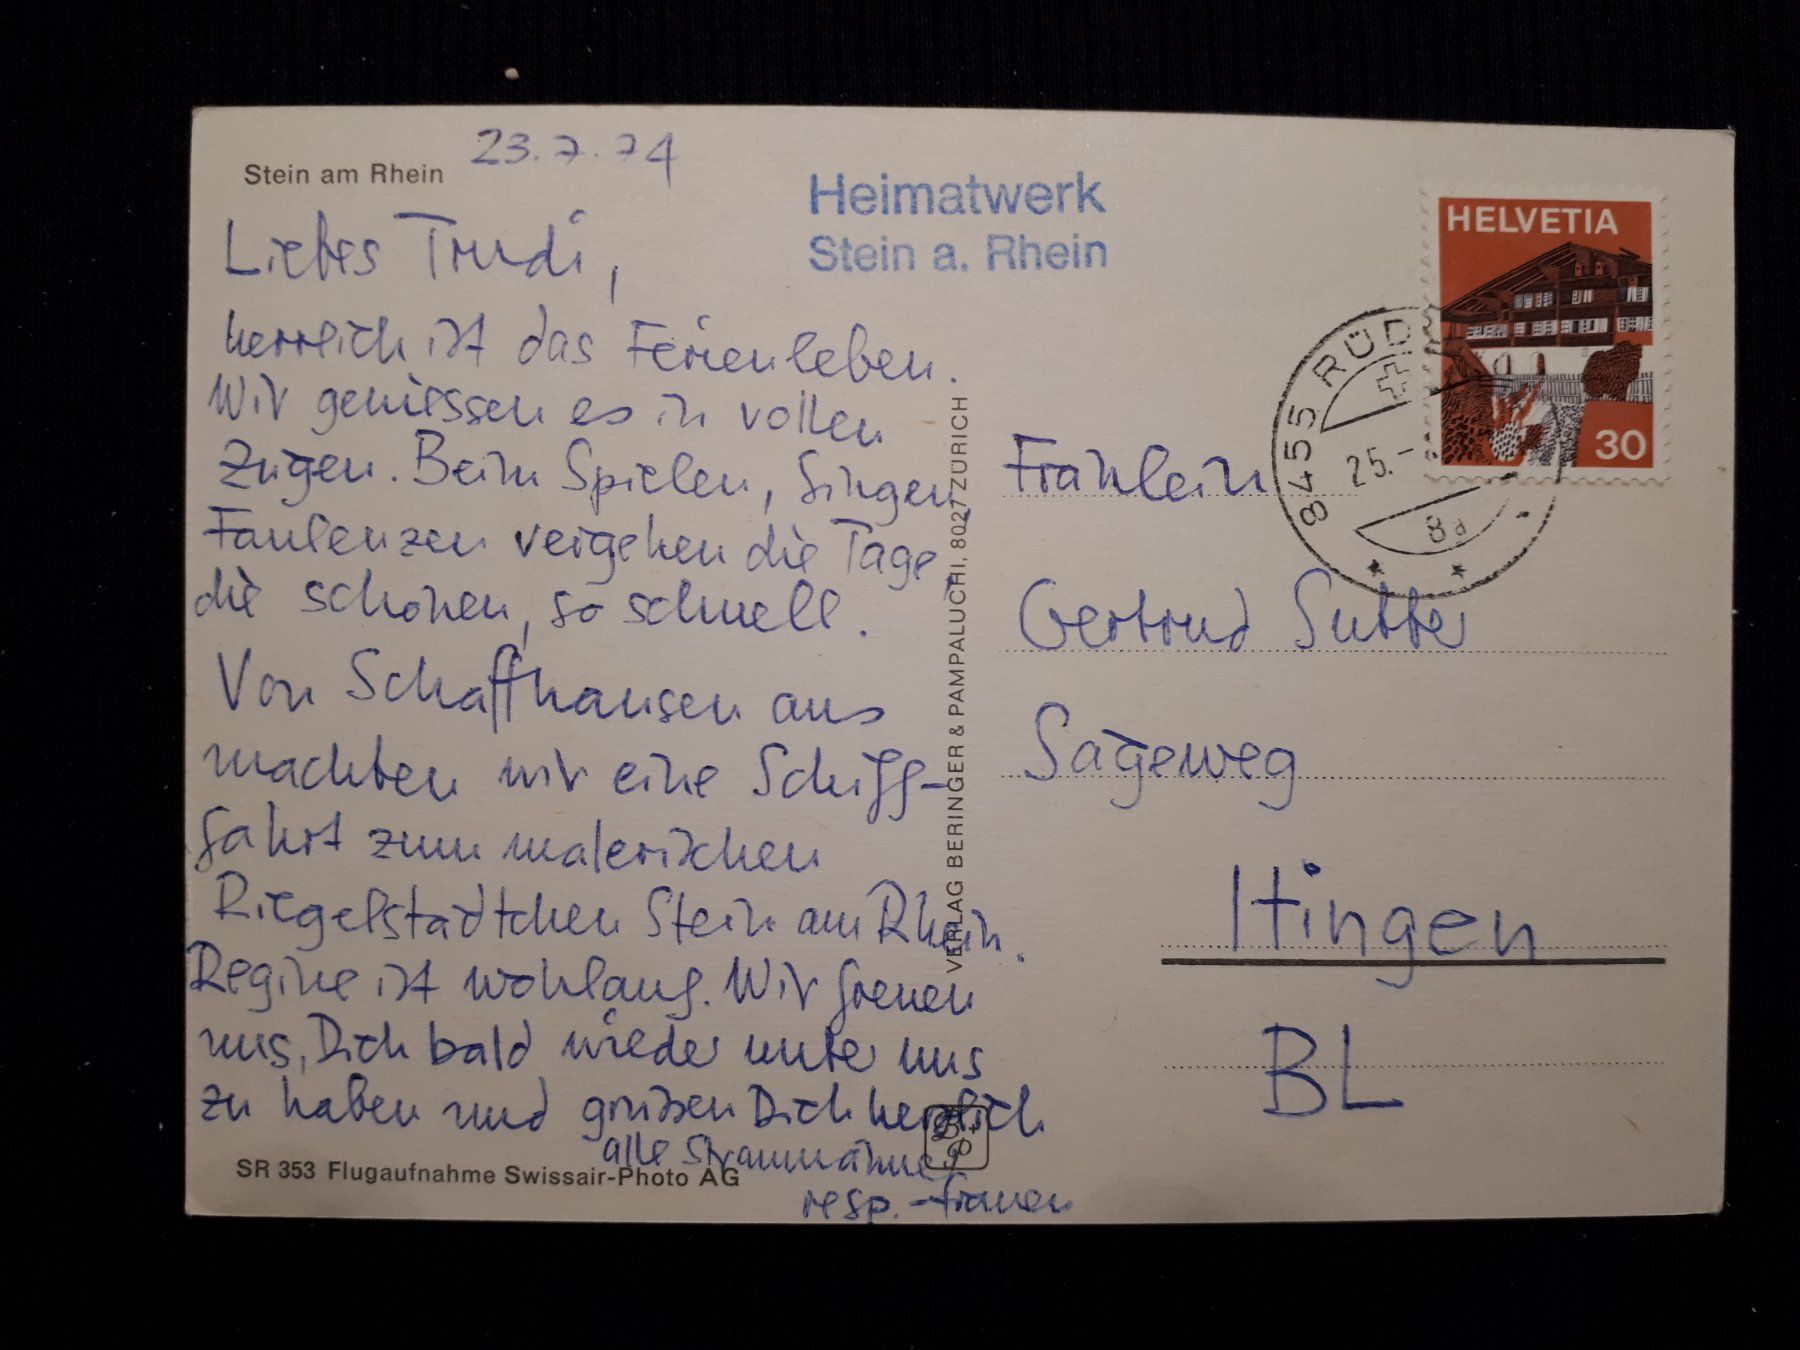 Stein am Rhein
23.7.74
Liebes Trudi,
herrlich ist das Ferienleben.
Wir geniessen es in vollen
Zügen. Beim Spielen, Singen,
Faulenzen vergehen die Tage,
die schönen, so schnell.
Von Schaffhausen aus
machten wir eine Schiff-
fahrt zum malerischen
Riegelstädtchen Stein am Rhein.
Regine ist wohlauf. Wir freuen
uns, Dich bald wieder unter uns
zu haben und grüssen Dich herzlich
alle
resp. -frauen
SR 353 Flugaufnahme Swissair-Photo AG
Heimatwerk
Stein a. Rhein
VERLAG BERINGER & PAMPALUCHI, 8027 ZÜRICH
HELVETIA
30
8455 RÜD
25.-
8
Fräulein
Gertrud Sutter
Sägeweg
Itingen
BL